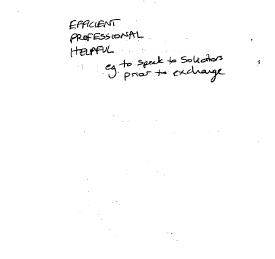 EFFICIENT
PROFESSIONAL
HELPFUL
eg to speak to Solicitors
prior to exchange